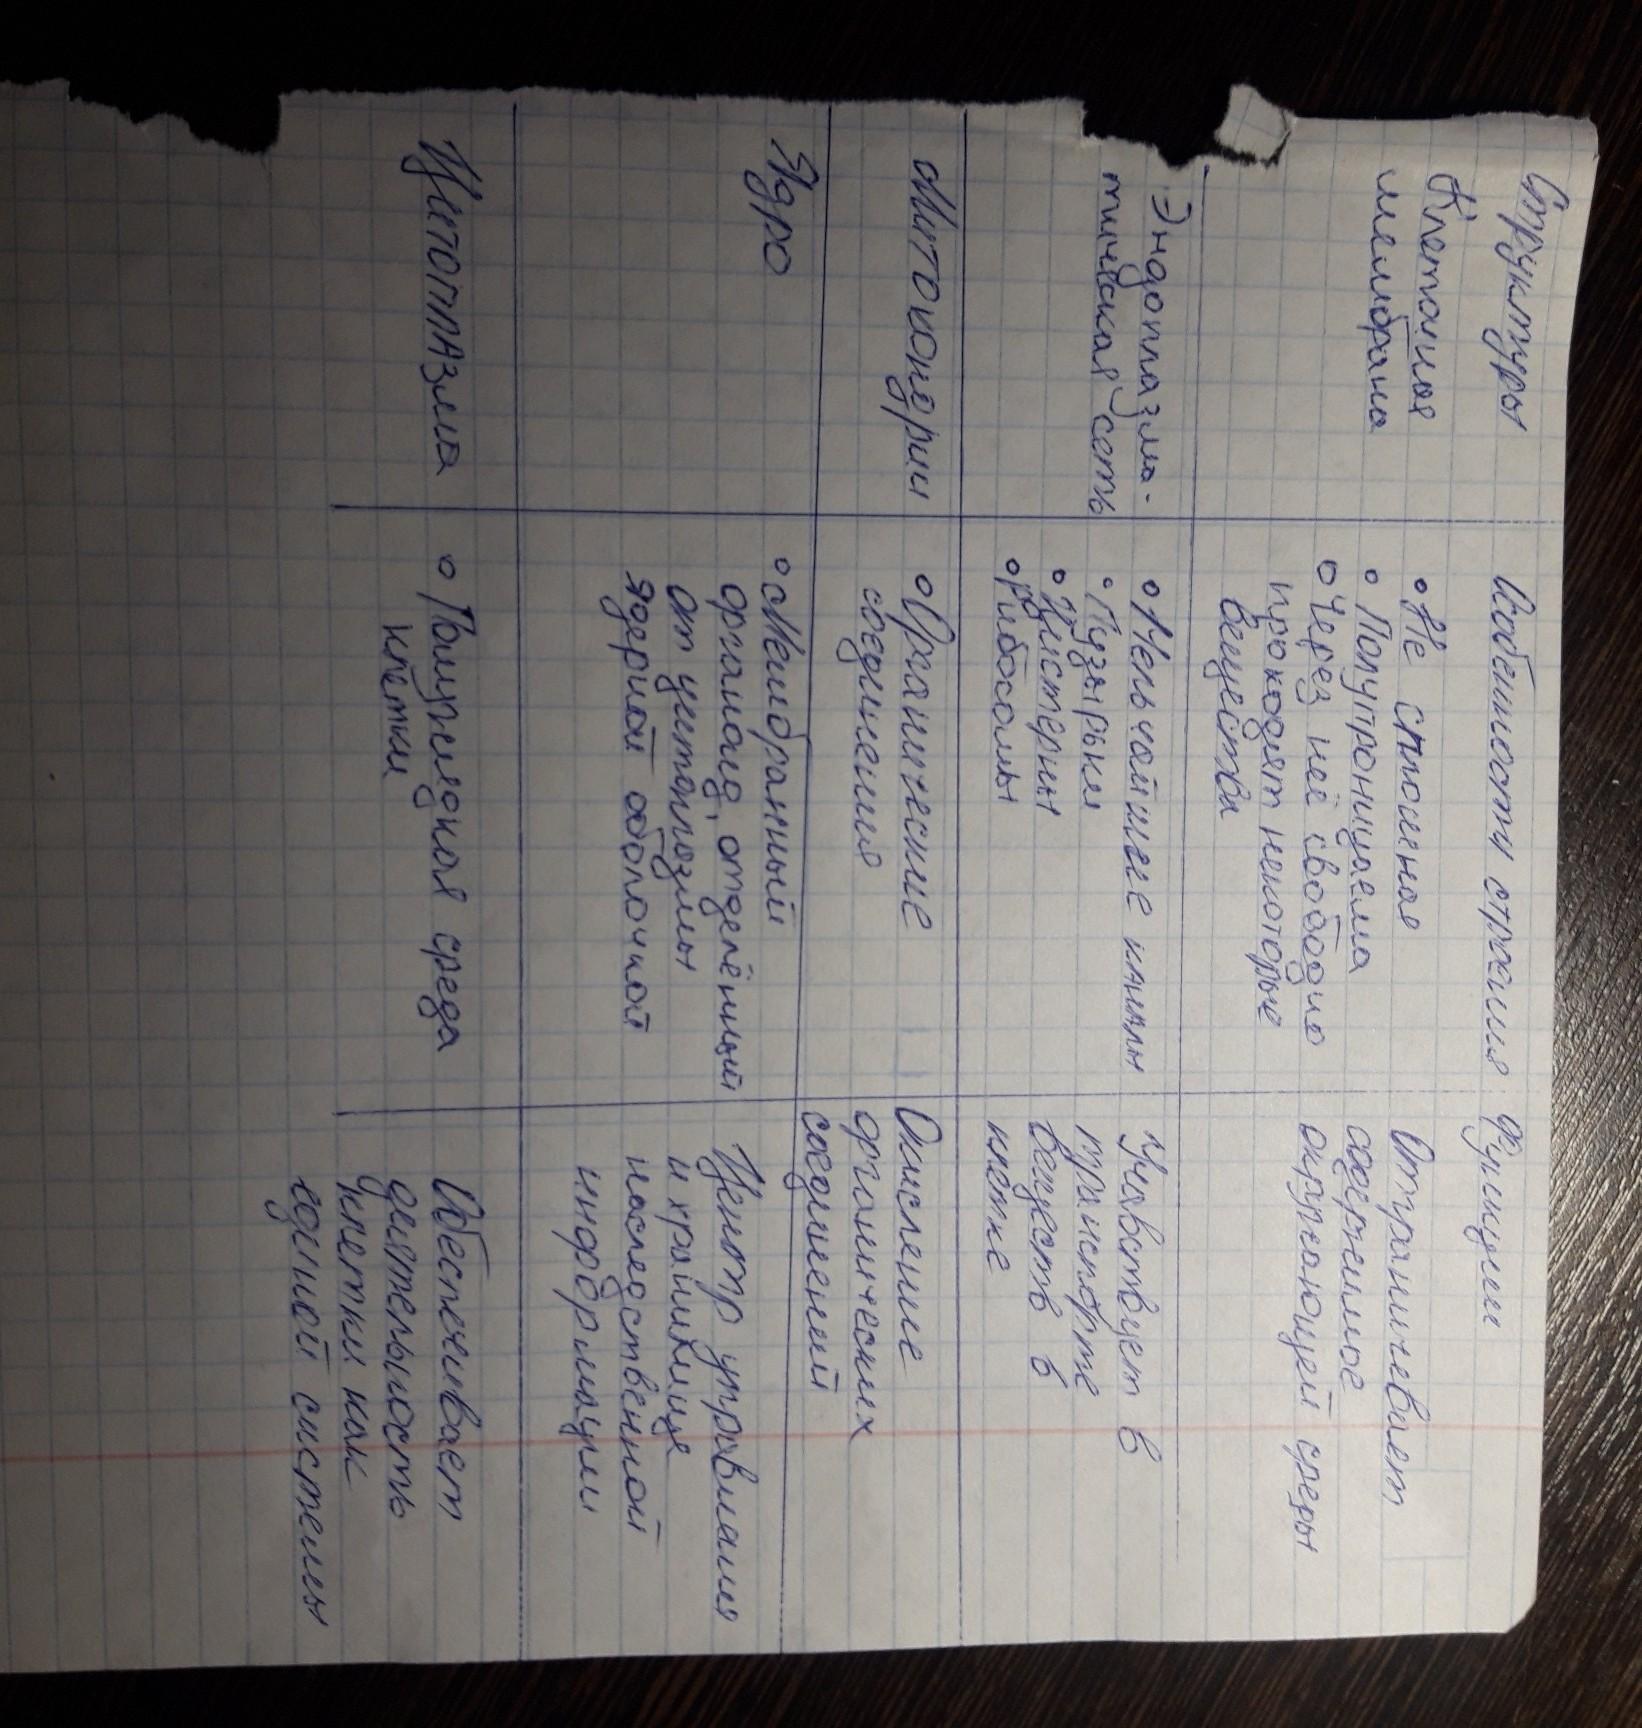 Структуры Особенности строения Функции
Клеточная
мембрана
• Не сплошная
• Полупроницаема
• Через неё свободно
проходят некоторые
вещества
Отграничевает
содержимое
окружающей среды
Эндоплазма-
тическая сеть
• Мельчайшие каналы
• Пузырьки
• Цистерны
• рибосомы
Учавствует в
транспорте
веществ в
клетке
Митохондрии
• Органические
соединения
Окисление
органических
соединений
Ядро
• Мембранный
органоид, отделённый
от цитоплазмы
ядерной оболочкой
Центр управления
и хранилище
наследственной
информации
Цитоплазма
• Полужидкая среда
клетки
Обеспечивает
деятельность
клетки как
единой системы